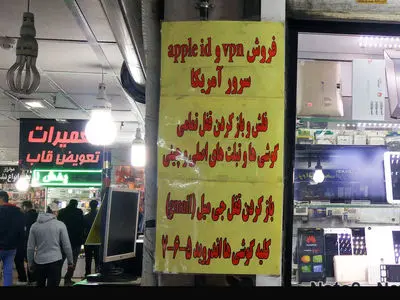 فروش vpn و apple id
سرور آمریکا
فلش و باز کردن قفل تمامی
گوشی ها و تبلت های اصلی و چینی
باز کردن قفل جی میل (gmail)
کلیه گوشی ها اندروید ۵-۶-۷
تعمیرات
تعویض قاب
HUAWEI